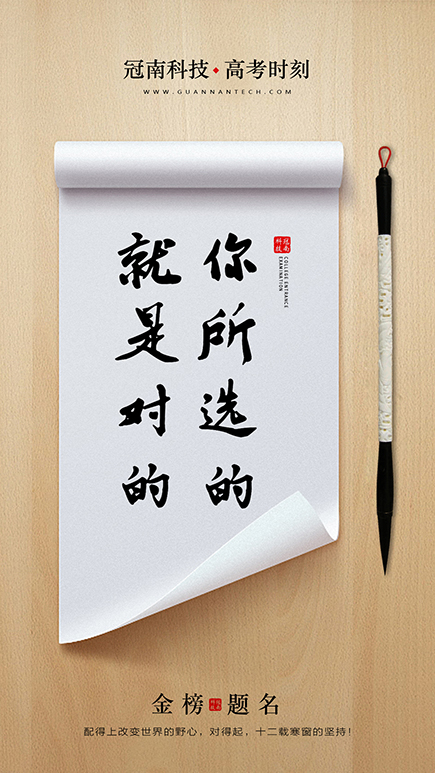 冠南科技·高考时刻
WWW.GUANNANTECH.COM
冠南科技
COLLEGE ENTRANCE
EXAMINATION
你所选的
就是对的
金榜冠南科技题名
配得上改变世界的野心，对得起，十二载寒窗的坚持！